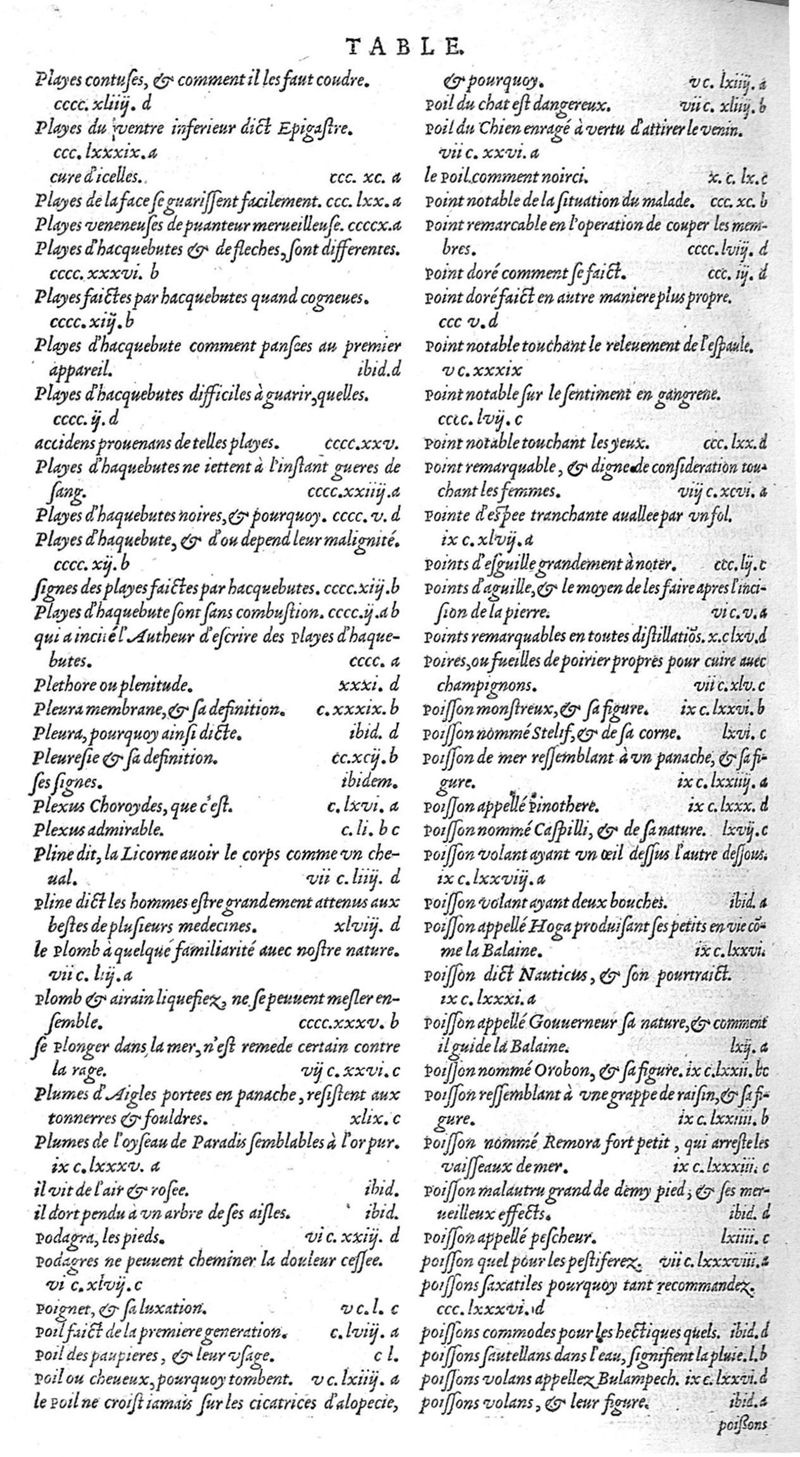 TABLE.
Playes contuſes, & comment il les faut coudre.
cccc. xliiij. d
Playes du ventre inferieur dict Epigaſtre.
ccc. lxxxix. a
cure d'icelles. ccc. xc. a
Playes de la face ſe guariſſent facilement. ccc. lxx. a
Playes veneneuſes de puanteur merueilleuſe. ccccx. a
Playes d'hacquebutes & de fleches, ſont differentes.
cccc. xxxvi. b
Playes faictes par hacquebutes quand cogneues.
cccc. xij. b
Playes d'hacquebute comment panſees au premier
appareil. ibid. d
Playes d'hacquebutes difficiles à guarir, quelles.
cccc. ij. d
accidens prouenans de telles playes. cccc. xxv.
Playes d'haquebutes ne iettent à l'inſtant gueres de
ſang. cccc. xxiiij. a
Playes d'haquebutes noires, & pourquoy. cccc. v. d
Playes d'haquebute, & d'ou depend leur malignité.
cccc. xij. b
ſignes des playes faictes par hacquebutes. cccc. xij. b
Playes d'haquebute ſont ſans combuſtion. cccc. ij. a b
qui a incité l'Autheur d'eſcrire des Playes d'haque-
butes. cccc. a
Plethore ou plenitude. xxxi. d
Pleura membrane, & ſa definition. c. xxxix. b
Pleura, pourquoy ainſi dicte. ibid. d
Pleureſie & ſa definition. cc. xcij. b
ſes ſignes. ibidem.
Plexus Choroydes, que c'eſt. c. lxvi. a
Plexus admirable. c. li. b c
Pline dit, la Licorne auoir le corps comme vn che-
ual. vii c. liiij. d
Pline dict les hommes eſtre grandement attenus aux
beſtes de pluſieurs medecines. xlviij. d
le Plomb à quelque familiarité auec noſtre nature.
vii c. lij. a
Plomb & airain liquefiez, ne ſe peuuent meſler en-
ſemble. cccc. xxxv. b
ſe Plonger dans la mer, n'eſt remede certain contre
la rage. vij c. xxvi. c
Plumes d'Aigles portees en panache, reſiſtent aux
tonnerres & fouldres. xlix. c
Plumes de l'oyſeau de Paradis ſemblables à l'or pur.
ix c. lxxxv. a
il vit de l'air & roſee. ibid.
il dort pendu à vn arbre de ſes aiſles. ibid.
Podagra, les pieds. vi c. xxiij. d
Podagres ne peuuent cheminer la douleur ceſſee.
vi c. xlvij. c
Poignet, & ſa luxation. v c. l. c
Poil faict de la premiere generation. c. lviij. a
Poil des paupieres, & leur vſage. c l.
Poil ou cheueux, pourquoy tombent. v c. lxiiij. a
le Poil ne croiſt iamais ſur les cicatrices d'alopecie,
& pourquoy. v c. lxiiij. a
Poil du chat eſt dangereux. vii c. xliiij. b
Poil du Chien enragé à vertu d'attirer le venin.
vii c. xxvi. a
le Poil comment noirci. x. c. lx. c
Point notable de la ſituation du malade. ccc. xc. b
Point remarcable en l'operation de couper les mem-
bres. cccc. lvij. d
Point doré comment ſe faict. ccc. iij. d
Point doré faict en autre maniere plus propre.
ccc v. d
Point notable touchant le releuement de l'eſpaule.
v c. xxxix
Point notable ſur le ſentiment en gangrene.
cccc. lvij. c
Point notable touchant les yeux. ccc. lxx. d
Point remarquable, & digne de conſideration tou-
chant les femmes. viij c. xcvi. a
Pointe d'eſpee tranchante auallee par vn fol.
ix c. xlvij. a
Points d'eſguille grandement à noter. ccc. lij. c
Points d'aguille, & le moyen de les faire apres l'inci-
ſion de la pierre. vi c. v. a
Points remarquables en toutes diſtillatiõs. x. c lxv. d
Poires, ou fueilles de poirier propres pour cuire auec
champignons. vii c. xlv. c
Poiſſon monſtreux, & ſa figure. ix c. lxxvi. b
Poiſſon nommé Stelif, & de ſa corne. lxvi. c
Poiſſon de mer reſſemblant à vn panache, & ſa fi-
gure. ix c. lxxiiij. a
Poiſſon appellé Pinothere. ix c. lxxx. d
Poiſſon nommé Caſpilli, & de ſa nature. lxvij. c
Poiſſon volant ayant vn œil deſſus l'autre deſſous.
ix c. lxxviij. a
Poiſſon volant ayant deux bouches. ibid. a
Poiſſon appellé Hoga produiſant ſes petits en vie cõ-
me la Balaine. ix c. lxxvi.
Poiſſon dict Nauticus, & ſon pourtraict.
ix c. lxxxi. a
Poiſſon appellé Gouuerneur ſa nature, & comment
il guide la Balaine. lxij. a
Poiſſon nommé Orobon, & ſa figure. ix c. lxxii. bc
Poiſſon reſſemblant à vne grappe de raiſin, & ſa fi-
gure. ix c. lxxiiii. b
Poiſſon nommé Remora fort petit, qui arreſte les
vaiſſeaux de mer. ix c. lxxxiii. c
Poiſſon malautru grand de demy pied, & ſes mer-
ueilleux effects. ibid. d
Poiſſon appellé peſcheur. lxiiii. c
poiſſon quel pour les peſtiferez. vii c. lxxxviii. a
poiſſons ſaxatiles pourquoy tant recommandez.
ccc. lxxxvi. d
poiſſons commodes pour les hectiques quels. ibid. d
poiſſons ſautellans dans l'eau, ſignifient la pluie. l. b
poiſſons volans appellez Bulampech. ix c. lxxvi. d
poiſſons volans, & leur figure. ibid. a
poiſſons